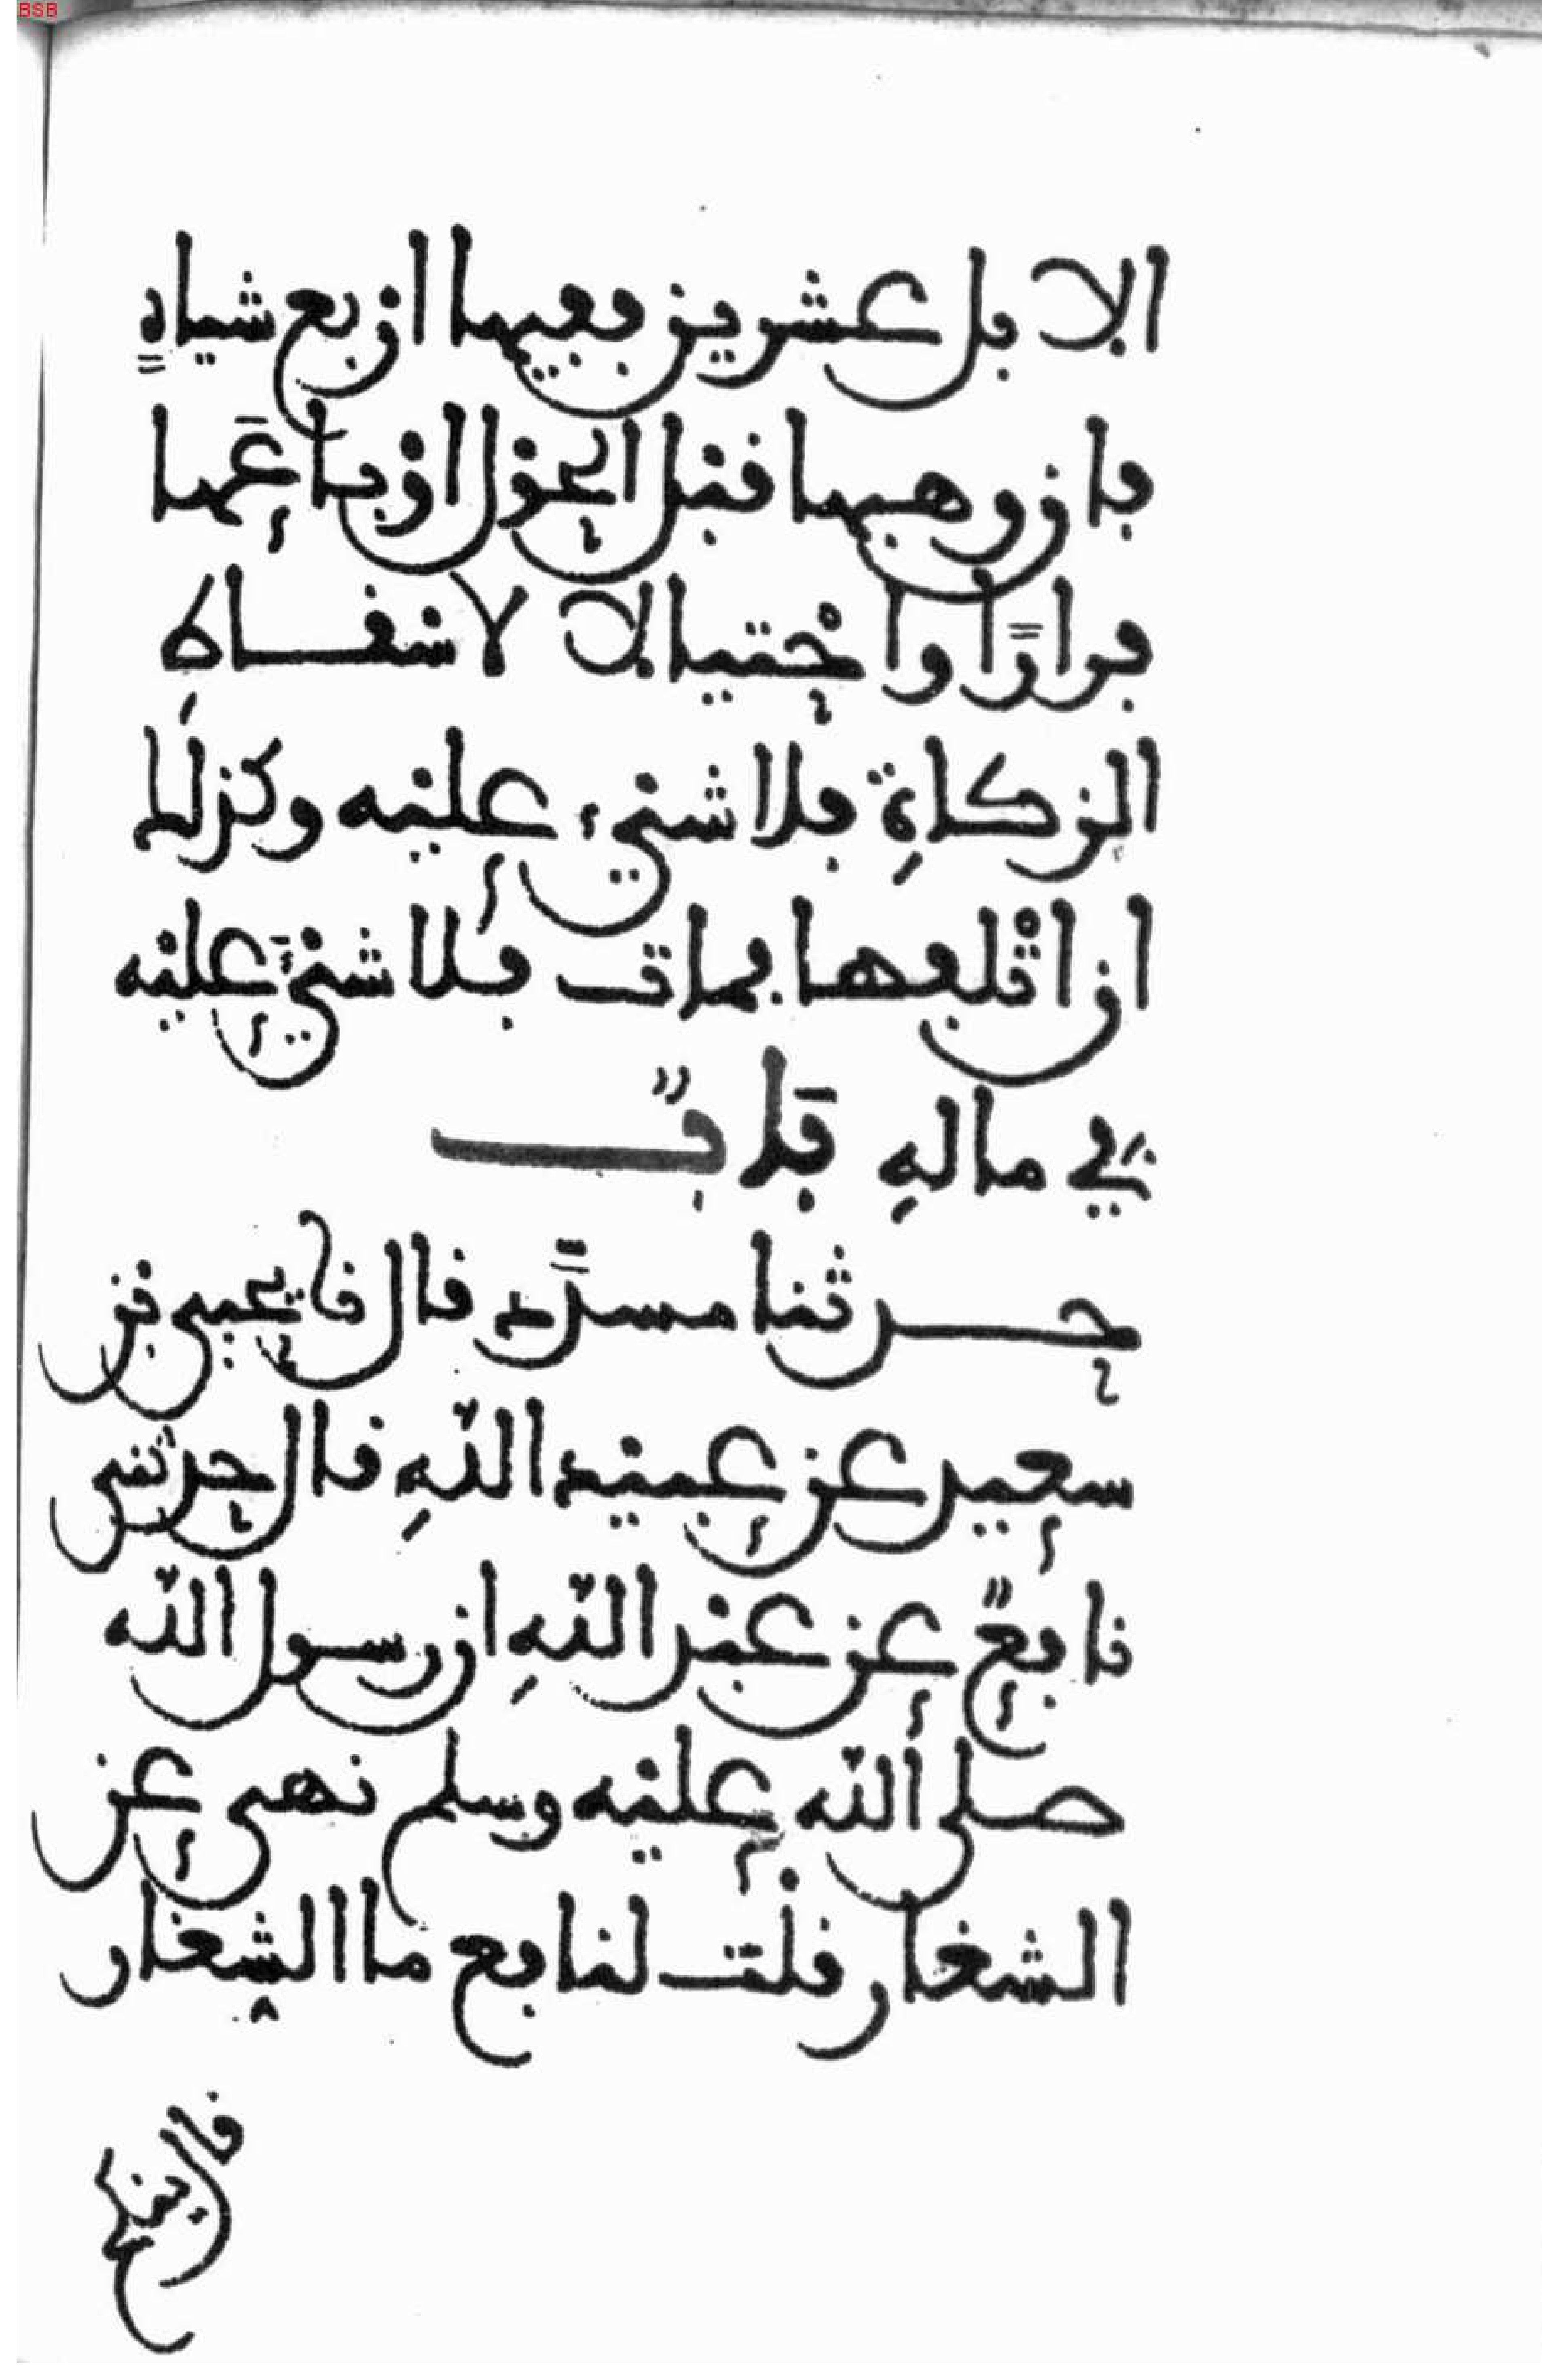 BSB
الابل عشرين ففيها ارْبع شياهٍ
فان وهبها قبل الحوْل اوْ باعَها
فرارًا واحْتيالا لاسقاطِ
الزكاةِ فلا شيْء عليْه وكذلك
ان اتْلفها فمات فلا شيْءَ عليْه
في مالهِ بَابٌ
حدثنا مسدَّد قال نا يحيى بْن
سعيد عن عبيْد اللّهِ قال حدثني
نافعٌ عن عبْد اللّهِ ان رسول اللّه
صلى اللّه عليْه وسلم نهى عن
الشغار قلْت لنافع ما الشغار
قال ينكح